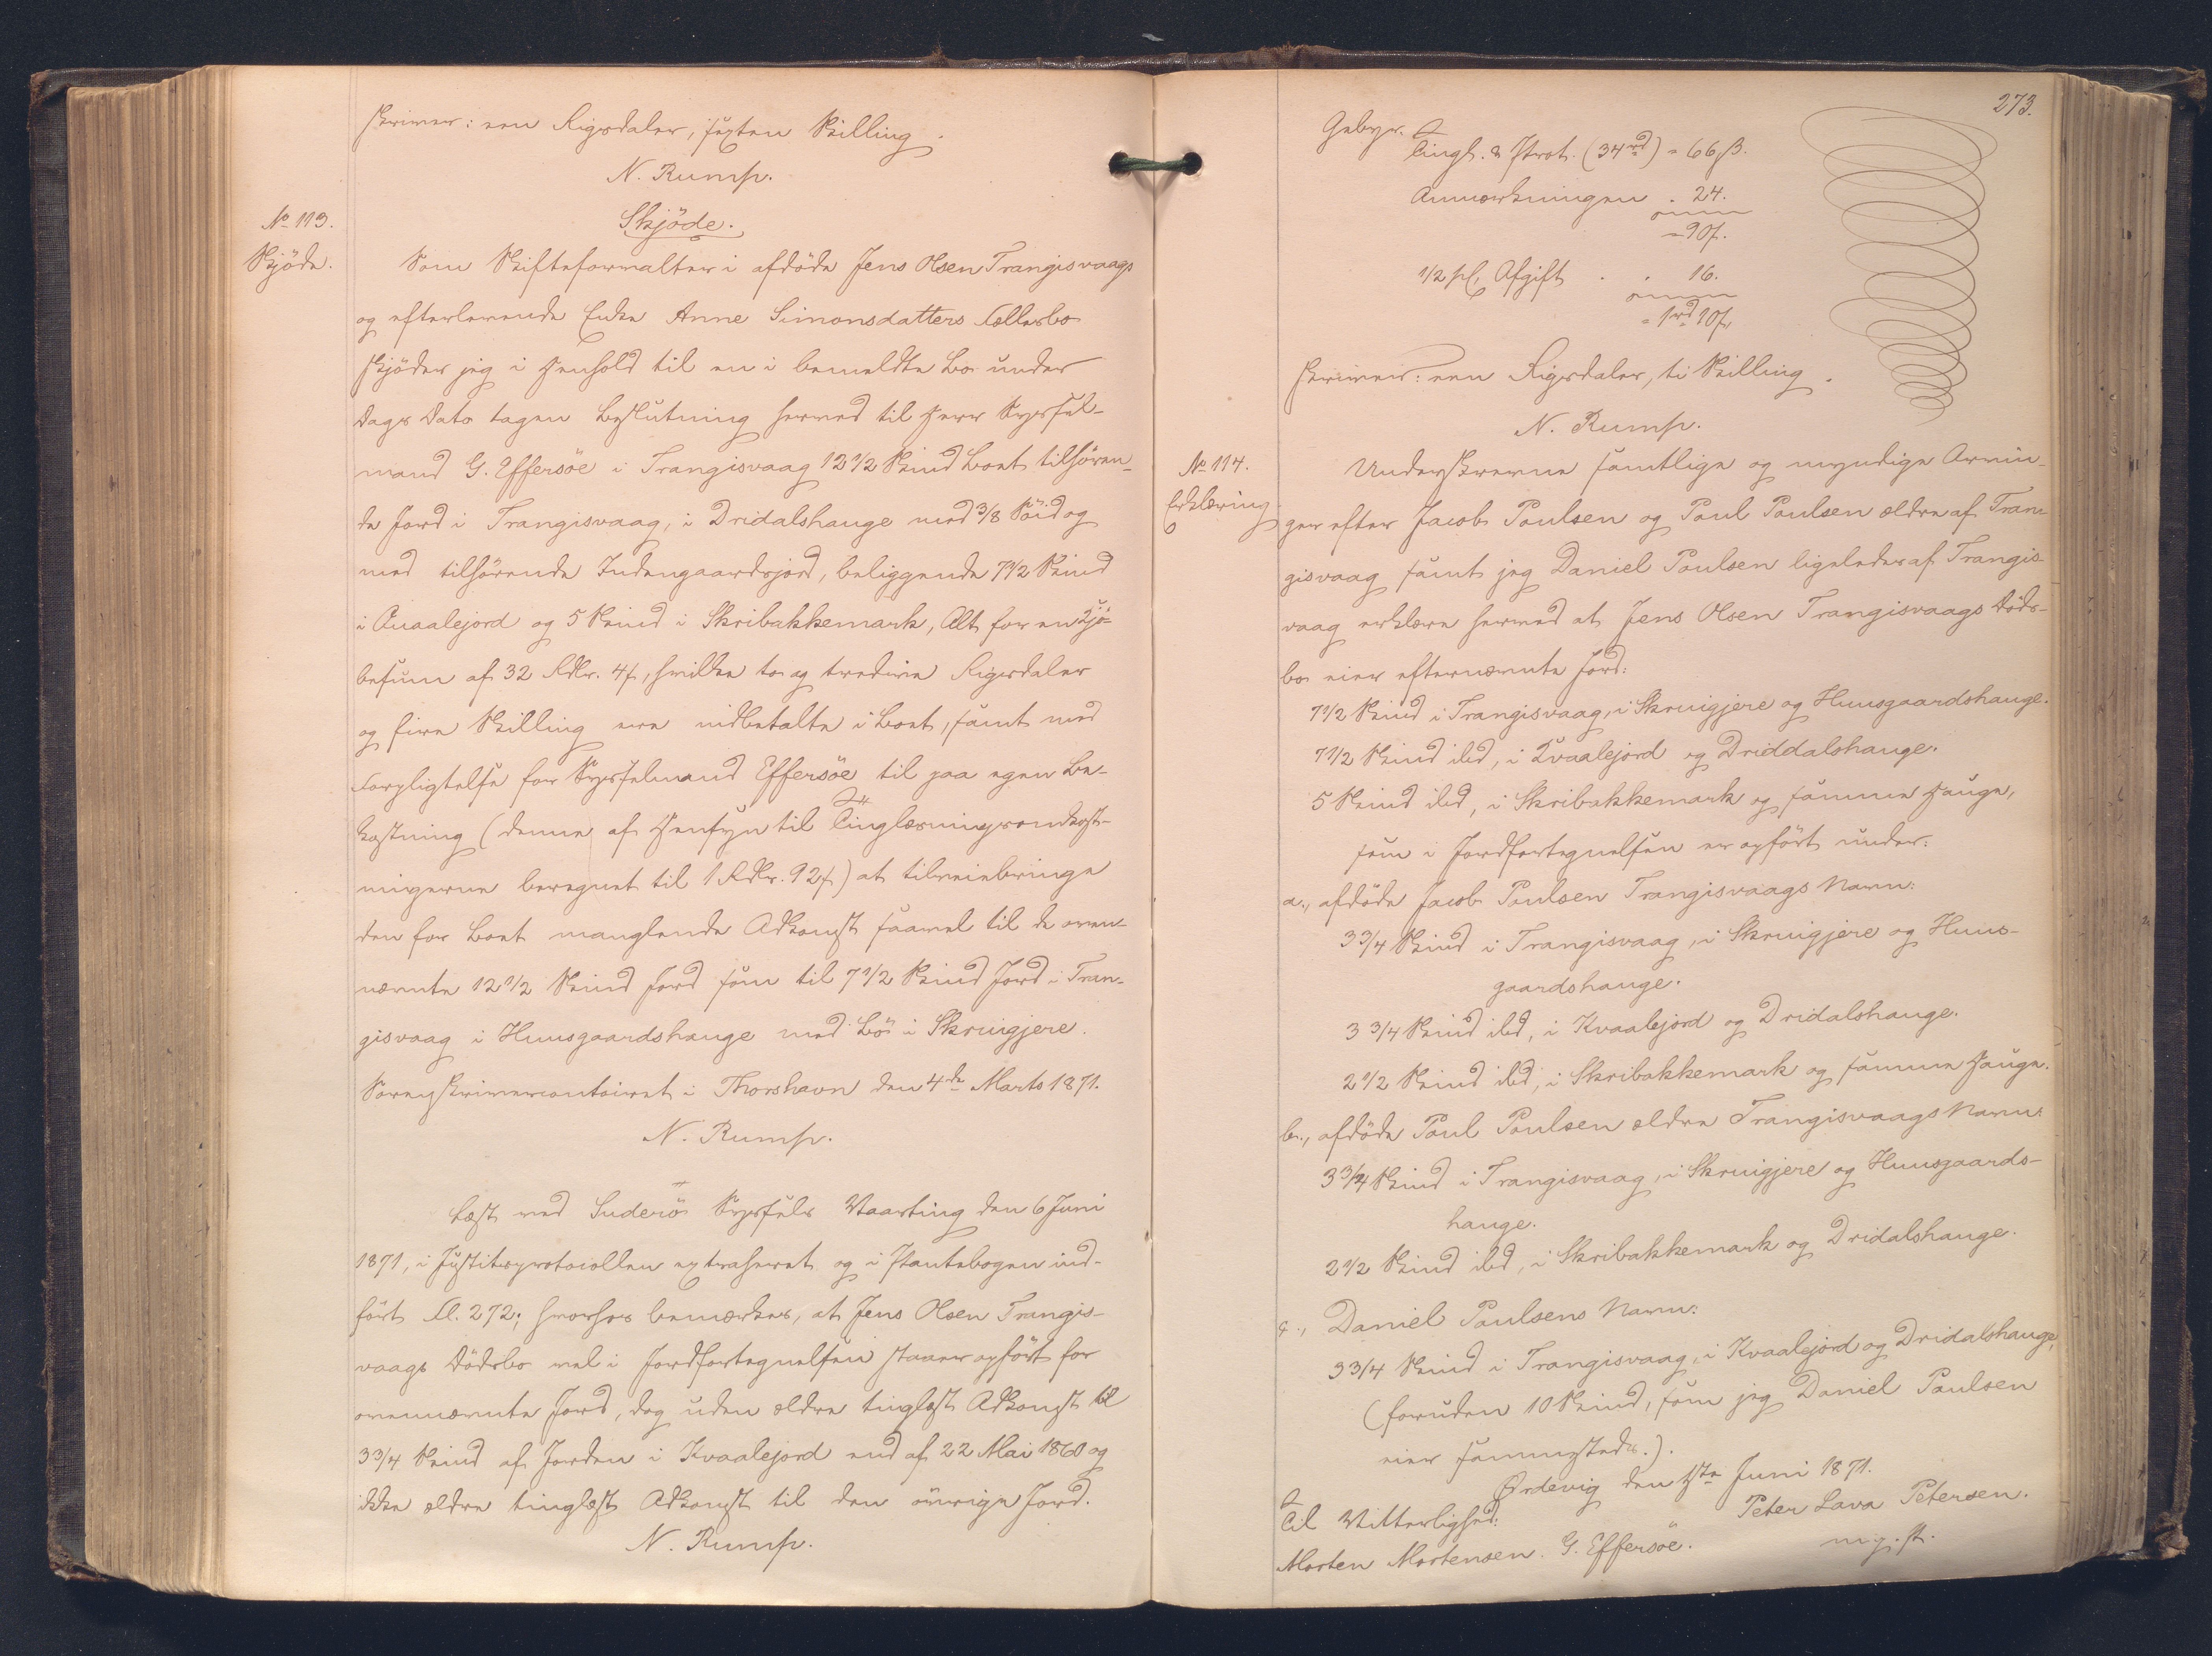 skriver: een Rigsdaler, sexten Skilling.
N. Rump.
No 113.
Skjöde.
Skjöde.
Som Skifteforvalter i afdöde Jens Olsen Trangisvaags
og efterlevende Enke Anne Simonsdatters Fællesbo
skjöder jeg i Henhold til en i bemeldte Bo under
Dags Dato tagen Beslutning herved til Herr Syssel-
mand G. Effersöe i Trangisvaag 12 1/2 Skind Boet tilhören-
de Jord i Trangisvaag, i Dridalshauge med 3/8 og
med tilhörende Indengaardsjord, beliggende 7 1/2 Skind
i Quaalejord og 5 Skind i Skribakkemark, Alt for en Kjö-
besum af 32 Rdlr. 4 s, hvilke to og tredive Rigsdaler
og fire Skilling ere indbetalte i Boet, samt med
Forpligtelse for Sysselmand Effersöe til paa egen Be-
kostning (denne af Hensyn til Tinglæsningsomkost-
ningerne beregnet til 1 Rdlr. 92 s) at tilveiebringe
den for Boet manglende Adkomst saavel til de oven-
nævnte 12 1/2 Skind Jord som til 7 1/2 Skind Jord i Tran-
gisvaag i Huusgaardshauge med Bö i Skruigjere.
Sorenskrivercontoiret i Thorshavn den 4de Marts 1871.
N. Rump.
Læst ved Suderö Syssels Vaarting den 6 Juni
1871, i Justitsprotocollen extraheret og i Pantebogen ind-
fört Fl. 272; hvorhos bemærkes, at Jens Olsen Trangis-
vaags Dödsbo vel i Jordfortegnelsen staaer opfört for
ovennævnte Jord, dog uden ældre tinglæst Adkomst til
3 3/4 Skind af Jorden i Kvaalejord end af 22 Mai 1860 og
ikke ældre tinglæst Adkomst til den övrige Jord.
N. Rump.
273.
Gebyr.
Tingl. & Prot. (34 rd) = 66 ß.
Anmærkningen . 24.
= 90 s.
1/2 pCt, Afgift . . 16.
= 1 rd 10 s,
skriver: een Rigsdaler, ti Skilling.
N. Rump.
No 114.
Erklæring
Underskrevne samtlige og myndige Arvin-
ger efter Jacob Poulsen og Poul Poulsen ældre af Tran-
gisvaag samt jeg Daniel Poulsen ligeledes af Trangis-
vaag erklære herved at Jens Olsen Trangisvaags Döds-
bo eier efternævnte Jord:
7 1/2 Skind i Trangisvaag, i Skruigjere og Huusgaardshauge.
7 1/2 Skind ibd, i Kvaalejord og Driddalshauge.
5 Skind ibd, i Skribakkemark og samme Hauge,
som i Jordfortegnelsen er opfört under:
a., afdöde Jacob Poulsen Trangisvaags Navn:
3 3/4 Skind i Trangisvaag, i Skruigjere og Huus-
gaardshauge.
3 3/4 Skind ibd, i Kvaalejord og Dridalshauge.
2 1/2 Skind ibd, i Skribakkemark og samme Hauge.
b., afdöde Poul Poulsen ældre Trangisvaags Navn:
3 3/4 Skind i Trangisvaag, i Skruigjere og Huusgaards-
hauge.
2 1/2 Skind ibd, i Skribakkemark og Dridalshauge.
c., Daniel Poulsens Navn:
3 3/4 Skind i Trangisvaag, i Kvaalejord og Dridalshauge,
(foruden 10 Skind, som jeg Daniel Poulsen
eier sammesteds.).
Ördevig den 1ste Juni 1871.
Til Vitterlighed: Peter Lava Petersen.
Morten Mortensen. G. Effersöe. m. f. P.